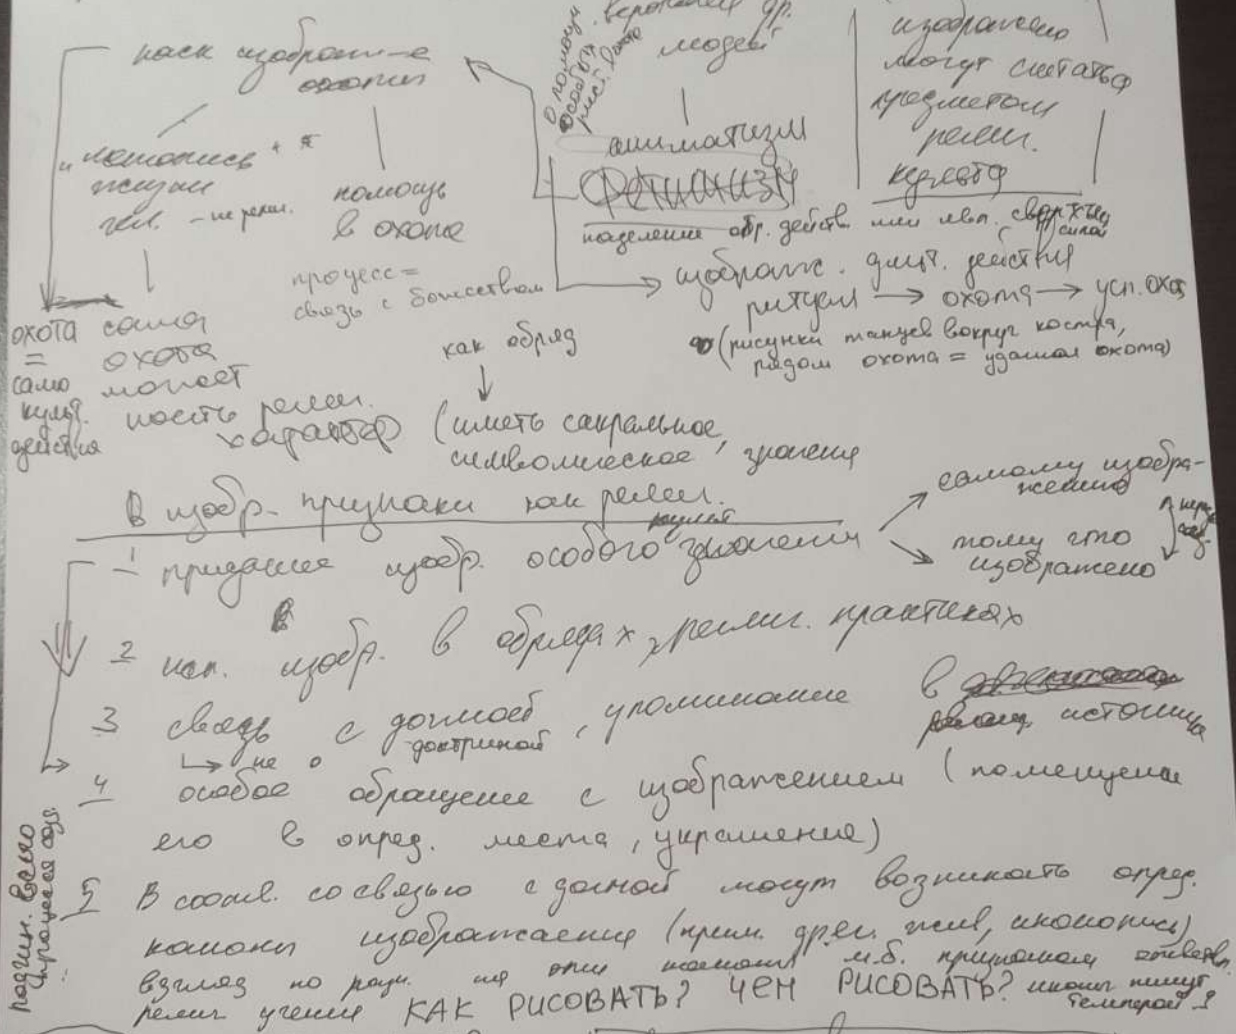 наск. изображ-е
охоты
"летопись"
жизни
чел. – не религ.
помощь
в охоте
процесс =
связь с божеством
охота
=
само
культ.
действия
сама
охота
может
носить религ.
характер
как обряд
(иметь сакральное,
символическое, значение
О помощи
особого
др.
людей
аниматизм
фетишизм
наделение обр. действ. или явл. сверхъ
силой
изображено
могут считаться
предметом
религ.
культа
изображ. длит. действия
ритуал → охота → усп. охота
(рисунки танцев вокруг костра,
рядом охота = удачная охота)
В изобр. признаки как религ.
1 придание изобр. особого значения
культ
самому изобра-
жению
тому что
изображено
2 исп. изобр. в обрядах, религ. практиках
3 связь с догмой, упоминание в
доктриной
религ. источниках
↳ не о
4 особое обращение с изображением (помещение
его в опред. места, украшение)
5 В соотв. со связью с догмой могут возникать опред.
каноны изображения (прим. древ. егип., иконопись)
взгляд по эти каноны м.б. признаком
религ учения КАК РИСОВАТЬ? ЧЕМ РИСОВАТЬ? иконы пишут
темперой
подчин. всего
процесса созд.